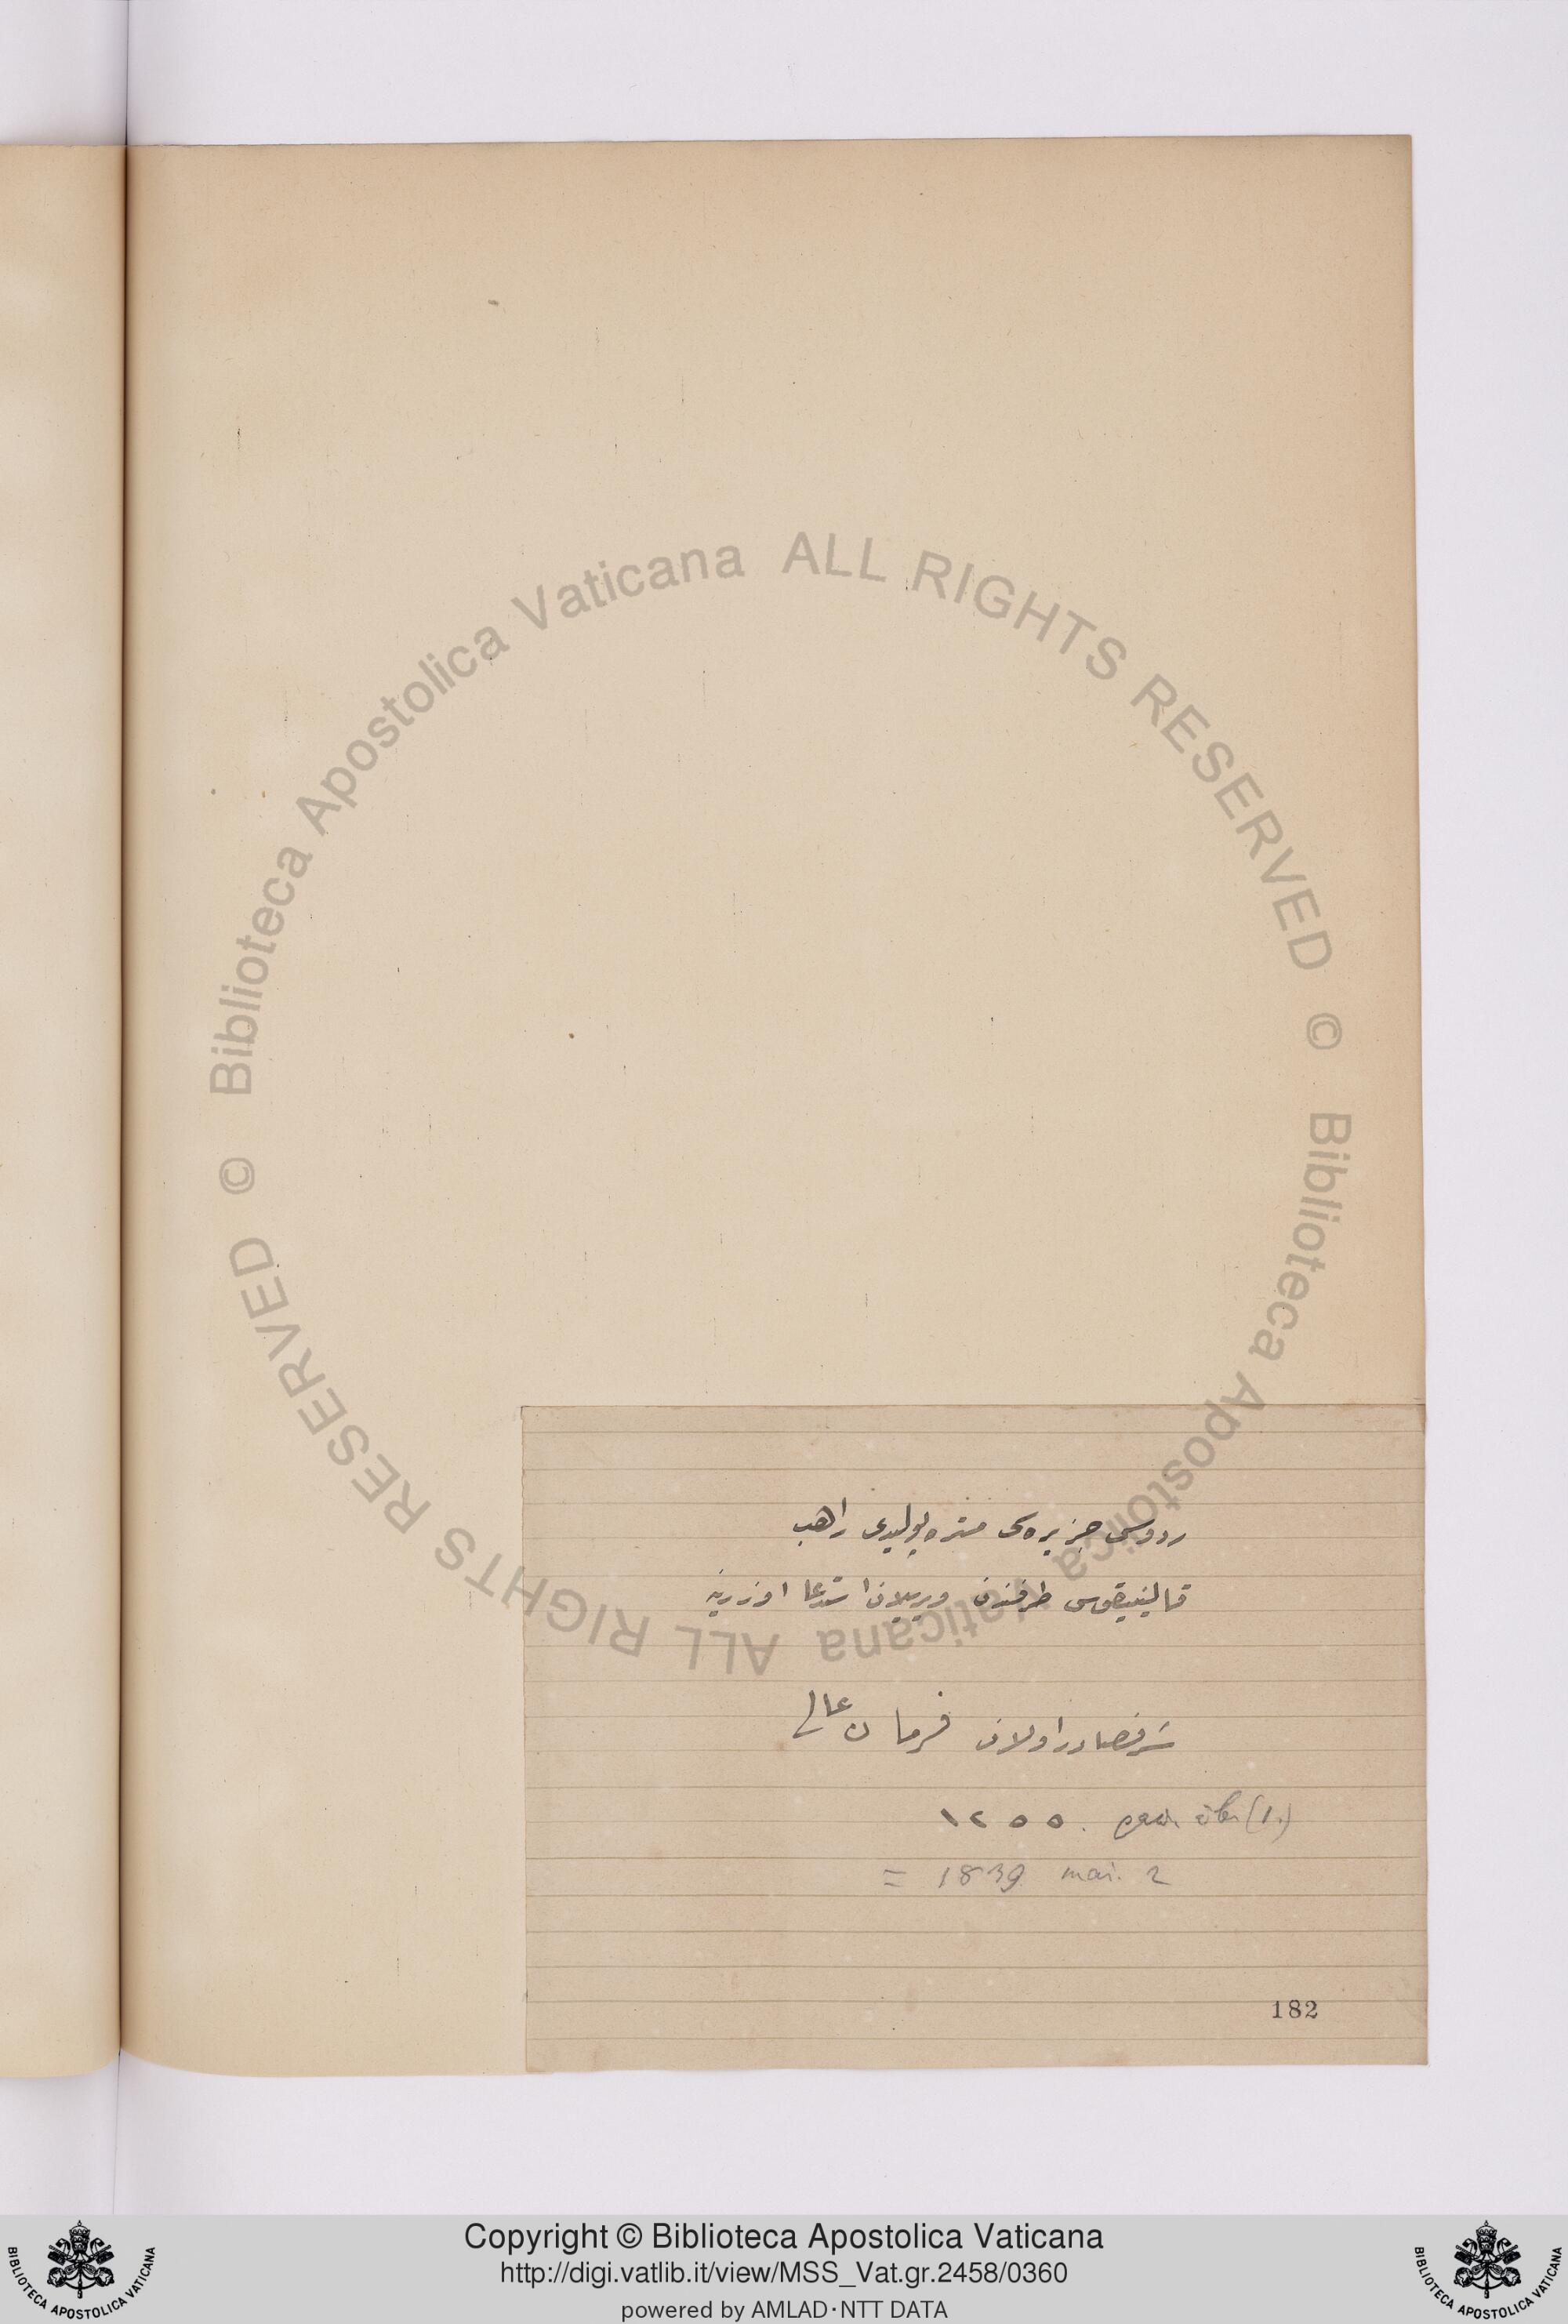 ردوس جزیره‌سی متره‌پولیدی راهب
قالینیقوس طرفندن ویریلان استدعا اوزرینه
شرفصادر اولان فرمان عالی
١٢٥٥.
= 1839 mai. 2
182
Biblioteca Apostolica Vaticana ALL RIGHTS RESERVED ©
Biblioteca Apostolica Vaticana ALL RIGHTS RESERVED ©
Copyright © Biblioteca Apostolica Vaticana
http://digi.vatlib.it/view/MSS_Vat.gr.2458/0360
powered by AMLAD·NTT DATA
BIBLIOTECA APOSTOLICA VATICANA
BIBLIOTECA APOSTOLICA VATICANA